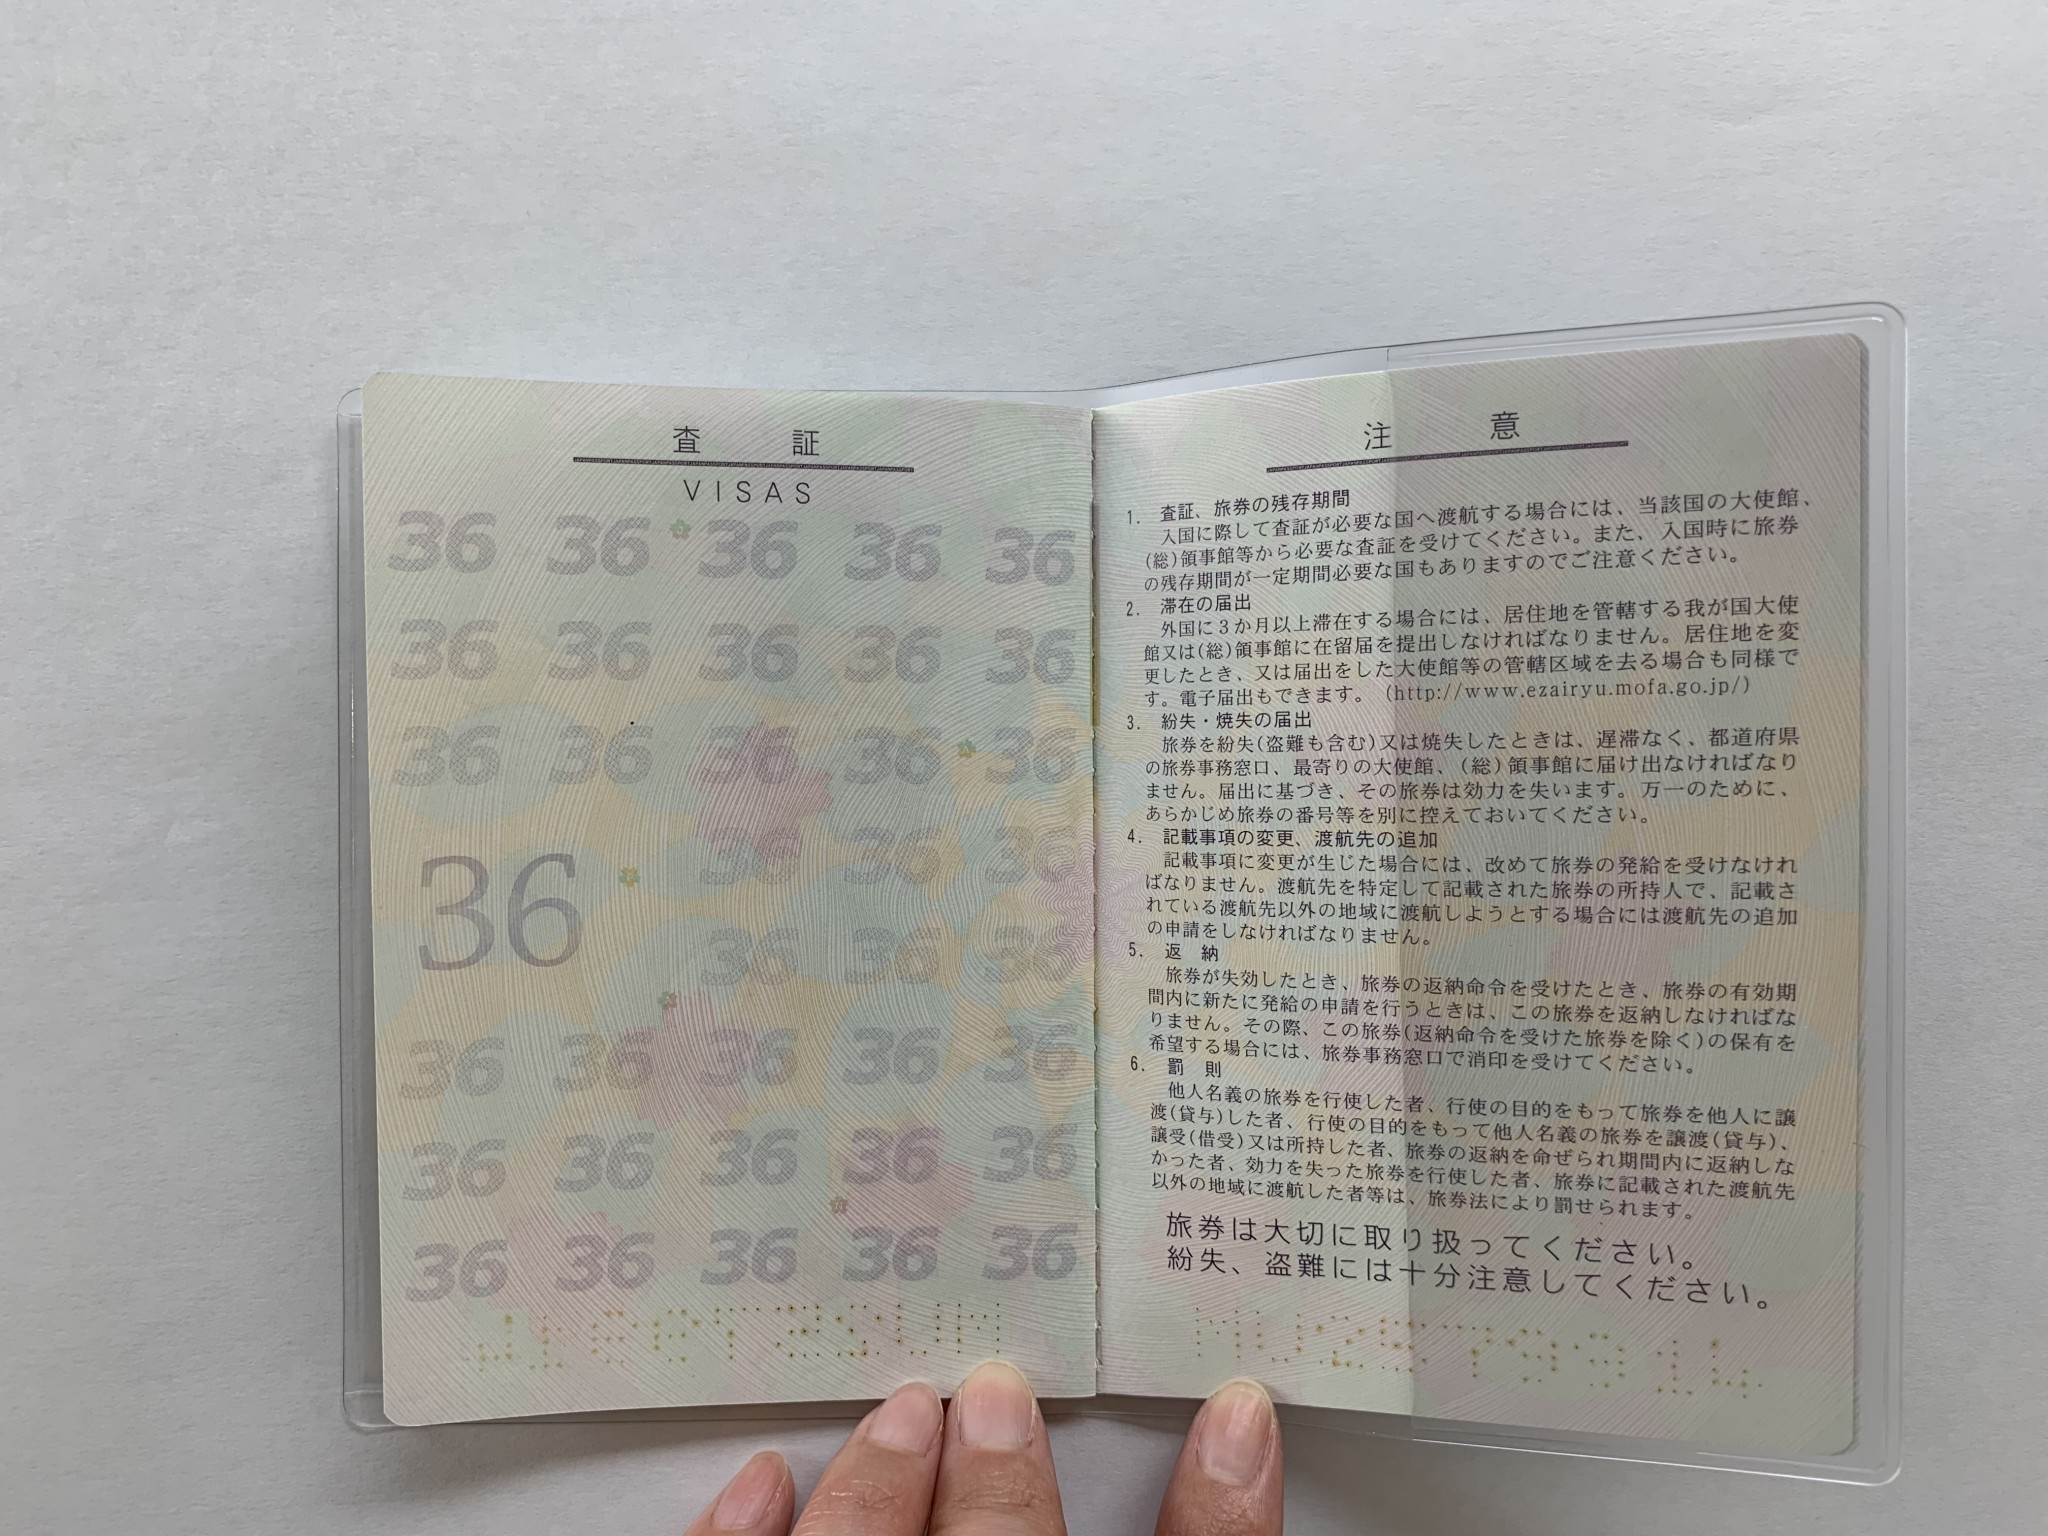 査証
VISAS
36 36 36 36 36
36 36 36 36 36
36 36 36 36 36
36 36 36
36
36 36 36
36 36 36 36 36
36 36 36 36 36
36 36 36 36 36
注意
1. 査証、旅券の残存期間
入国に際して査証が必要な国へ渡航する場合には、当該国の大使館、
(総)領事館等から必要な査証を受けてください。また、入国時に旅券
の残存期間が一定期間必要な国もありますのでご注意ください。
2. 滞在の届出
外国に3か月以上滞在する場合には、居住地を管轄する我が国大使
館又は(総)領事館に在留届を提出しなければなりません。居住地を変
更したとき、又は届出をした大使館等の管轄区域を去る場合も同様で
す。電子届出もできます。(http://www.ezairyu.mofa.go.jp/)
3. 紛失・焼失の届出
旅券を紛失(盗難も含む)又は焼失したときは、遅滞なく、都道府県
の旅券事務窓口、最寄りの大使館、(総)領事館に届け出なければなり
ません。届出に基づき、その旅券は効力を失います。万一のために、
あらかじめ旅券の番号等を別に控えておいてください。
4. 記載事項の変更、渡航先の追加
記載事項に変更が生じた場合には、改めて旅券の発給を受けなけれ
ばなりません。渡航先を特定して記載された旅券の所持人で、記載さ
れている渡航先以外の地域に渡航しようとする場合には渡航先の追加
の申請をしなければなりません。
5. 返納
旅券が失効したとき、旅券の返納命令を受けたとき、旅券の有効期
間内に新たに発給の申請を行うときは、この旅券を返納しなければな
りません。その際、この旅券(返納命令を受けた旅券を除く)の保有を
希望する場合には、旅券事務窓口で消印を受けてください。
6. 罰則
他人名義の旅券を行使した者、行使の目的をもって旅券を他人に譲
渡(貸与)した者、行使の目的をもって他人名義の旅券を譲渡(貸与)、
譲受(借受)又は所持した者、旅券の返納を命ぜられ期間内に返納しな
かった者、効力を失った旅券を行使した者、旅券に記載された渡航先
以外の地域に渡航した者等は、旅券法により罰せられます。
旅券は大切に取り扱ってください。
紛失、盗難には十分注意してください。